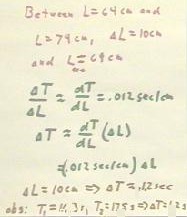 Between L=64cm and
L=74cm, ΔL=10cm
and L=69cm
ΔT/ΔL ≈ dT/dL = .012 sec/cm
ΔT ≈ dT/dL (ΔL)
=(.012 sec/cm) ΔL
ΔL=10cm ⇒ ΔT=.12sec
obs: T₁=16.3s, T₂=17.5s ⇒ ΔT=1.2